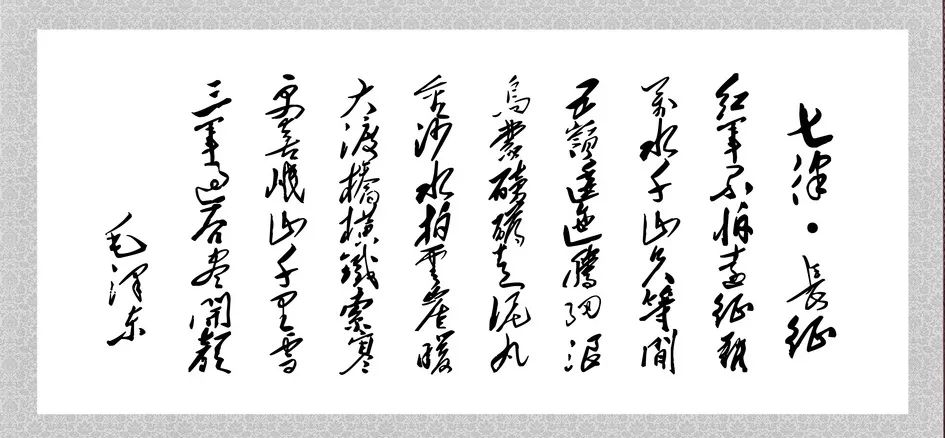 七律·長征
紅軍不怕遠征難
萬水千山只等閒
五嶺逶迤騰細浪
烏蒙磅礴走泥丸
金沙水拍雲崖暖
大渡橋橫鐵索寒
更喜岷山千里雪
三軍過后盡開顏
毛澤东